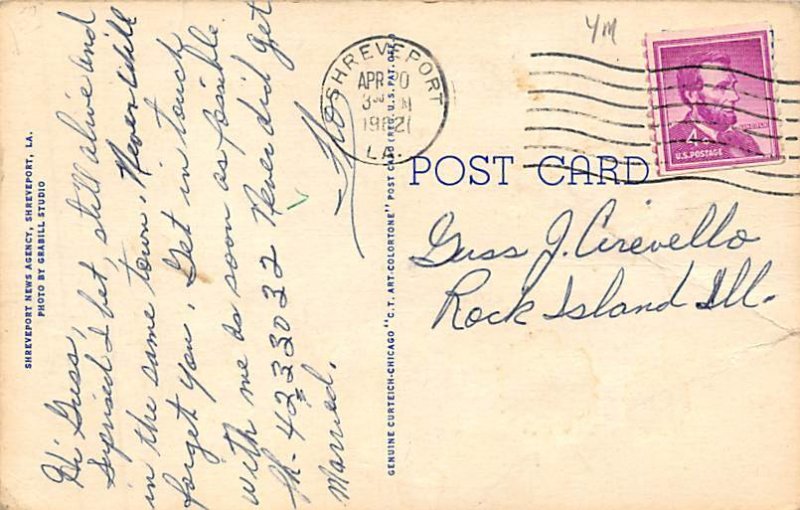 Hi Guss,
Suprised I bet, still alive and
in the same town. Never will
forget you. Get in touch
with me as soon as possible
Ph- 4233032 Never did get
Married.
SHREVEPORT NEWS AGENCY, SHREVEPORT, LA.
PHOTO BY GRABILL STUDIO
GENUINE CURTEICH-CHICAGO "C.T. ART-COLORTONE" POST CARD (REG. U.S. PAT. OFF.)
SHREVEPORT
APR 20
PM
1962
LA.
YM
4¢
U.S. POSTAGE
POST CARD
Guss J. Cirevello
Rock Island Ill.